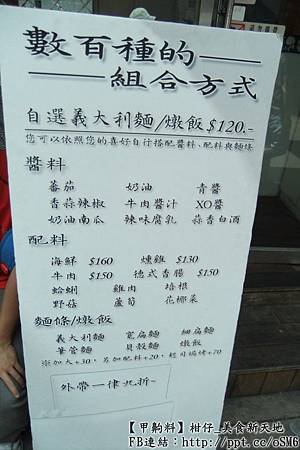 數百種的——
——組合方式
自選義大利麵/燉飯 $120.-
您可以依照您的喜好自行搭配醬料、配料與麵條
醬料
蕃茄 奶油 青醬
香蒜辣椒 牛肉醬汁 XO醬
奶油南瓜 辣味腐乳 蒜香白酒
配料
海鮮 $160 燻雞 $130
牛肉 $150 德式香腸 $150
蛤蜊 雞肉 培根
野菇 蘆筍 花椰菜
麵條/燉飯
義大利麵 寬扁麵 細扁麵
筆管麵 貝殼麵 燉飯
添加大+30，另加配料+20，起司焗烤+70
外帶一律九折~
【甲駒料】柑仔_美食新天地
FB連結：http://ppt.cc/oSM6